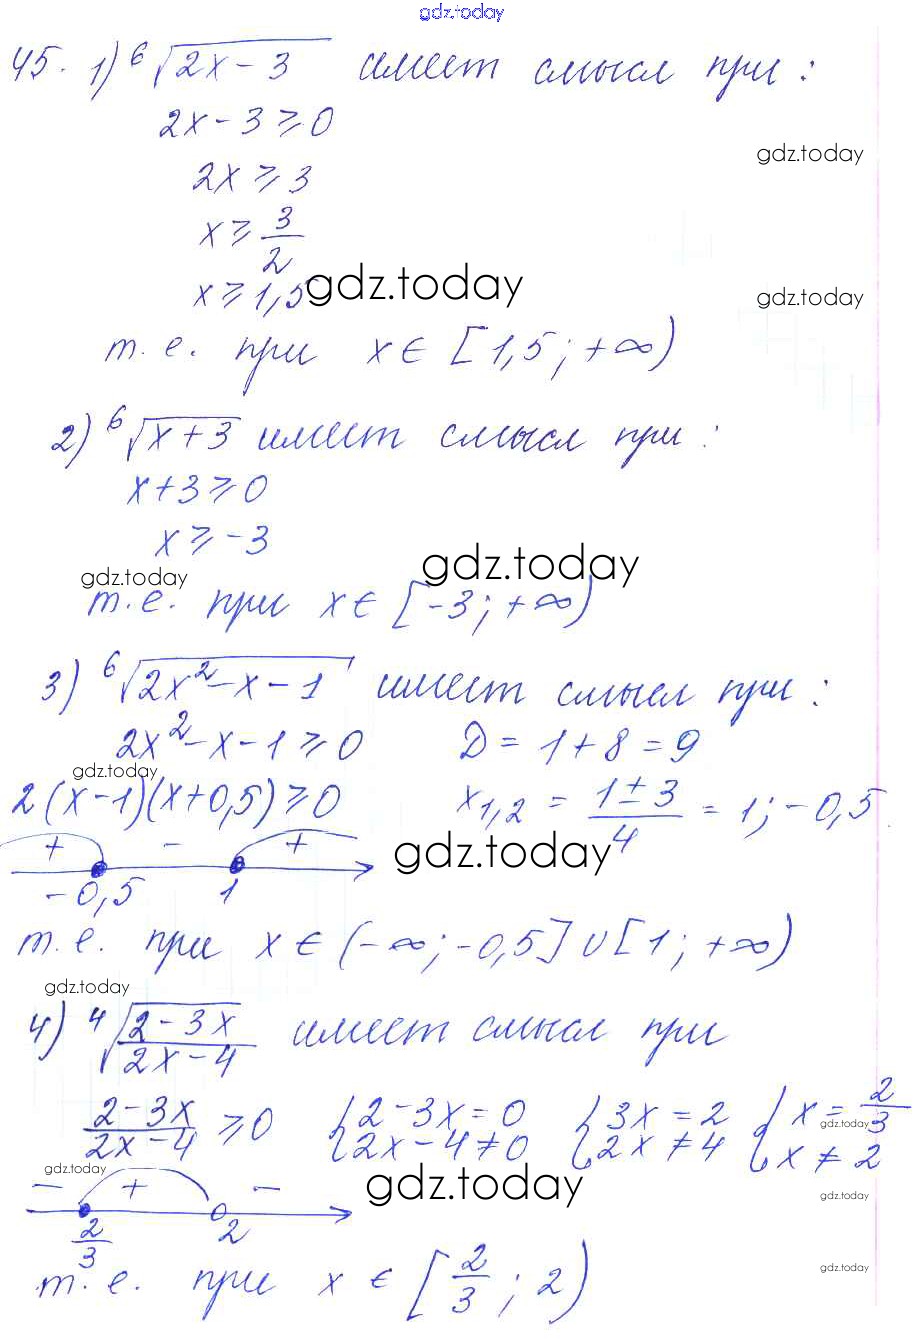 gdz.today
45. 1) ⁶√(2x-3) имеет смысл при:
2x-3 ≥ 0
gdz.today
2x ≥ 3
x ≥ 3/2
gdz.today
x ≥ 1,5
gdz.today
т.е. при x ∈ [1,5; +∞)
2) ⁶√(x+3) имеет смысл при:
x+3 ≥ 0
x ≥ -3
gdz.today
gdz.today
т.е. при x ∈ [-3; +∞)
3) ⁶√(2x²-x-1) имеет смысл при:
2x²-x-1 ≥ 0 D = 1+8 = 9
gdz.today
2(x-1)(x+0,5) ≥ 0 x₁,₂ = (1±3)/4 = 1; -0,5
+ - +
gdz.today
-0,5 1
т.е. при x ∈ (-∞; -0,5] ∪ [1; +∞)
gdz.today
4) ⁴√((2-3x)/(2x-4)) имеет смысл при
(2-3x)/(2x-4) ≥ 0 {2-3x = 0 {3x = 2 {x = 2/3
{2x-4 ≠ 0 {2x ≠ 4 {x ≠ 2
gdz.today
gdz.today
- + -
gdz.today
gdz.today
2/3 2
gdz.today
т.е. при x ∈ [2/3; 2)